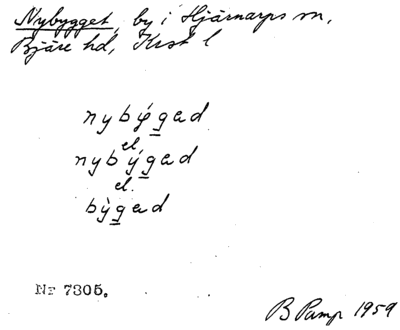 Nybygget, by i Hjärnarps sn,
Bjäre hd, Krist l
nybý̀gad
el.
nybýgad
el.
bỳgad
Nr 7305.
B Pamp 1959